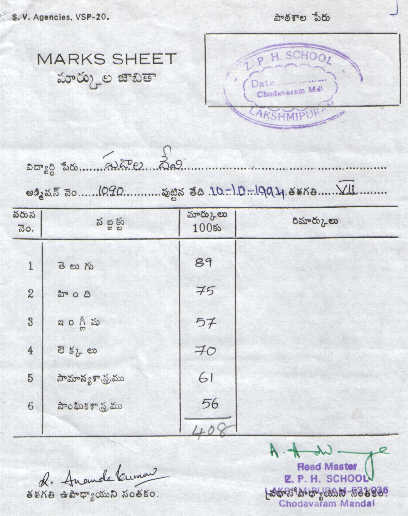 S. V. Agencies, VSP-20.
పాఠశాల పేరు
MARKS SHEET
మార్కుల జాబితా
Z. P. H. SCHOOL
Date
Chodavaram Mdl
LAKSHMIPURAM
విద్యార్థి పేరు దేవి
అడ్మిషన్ నెం. 1090 పుట్టిన తేది 10-10-1994 తరగతి VII
వరుస నెం. సబ్జక్టు మార్కులు 100కు రిమార్కులు
1 తెలుగు 89
2 హింది 75
3 ఇంగ్లీషు 57
4 లెక్కలు 70
5 సామాన్యశాస్త్రము 61
6 సాంఘికశాస్త్రము 56
408
R. Anand Kumar
తరగతి ఉపాధ్యాయుని సంతకం.
Head Master
Z. P. H. SCHOOL
ప్రధానోపాధ్యాయుని సంతకం
Chodavaram Mandal